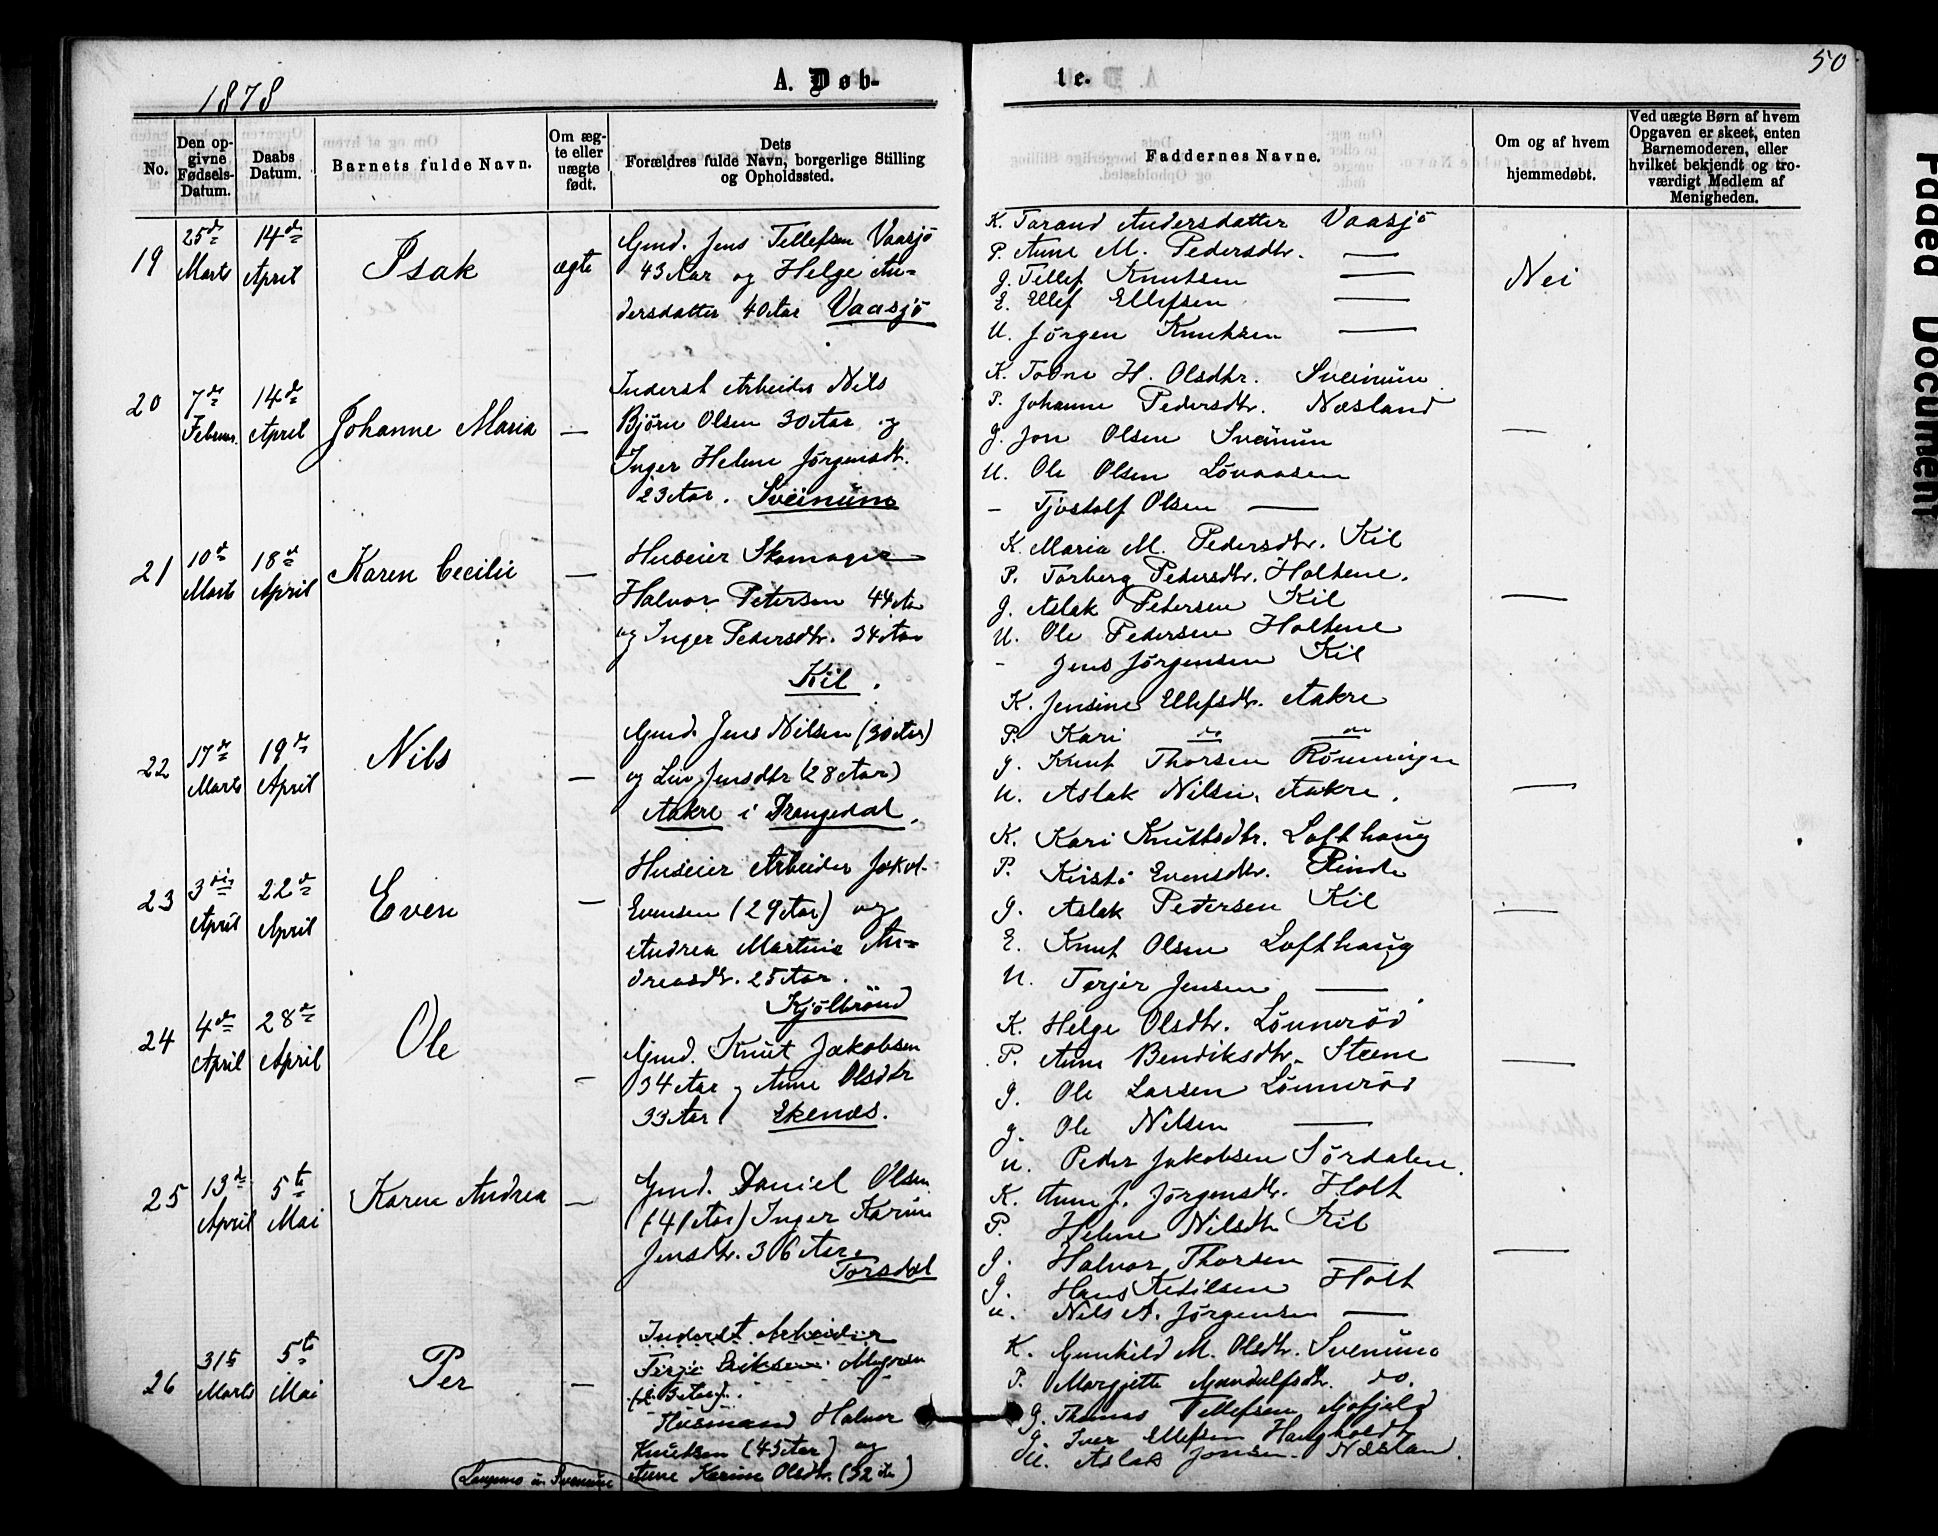 50
1878
A. Døb-
te.
No.
Den op-
givne
Fødsels-
Datum.
Daabs
Datum.
Barnets fulde Navn.
Om æg-
te eller
uægte
født.
Dets
Forældres fulde Navn, borgerlige Stilling
og Opholdssted.
Faddernes Navne.
Om og af hvem
hjemmedøbt.
Ved uægte Børn af hvem
Opgaven er skeet, enten
Barnemoderen, eller
hvilket bekjendt og tro-
værdigt Medlem af
Menigheden.
19
25de
Marts
14de
April
Isak
ægte
Gmd. Jens Tellefsen Vaasjö
43 Aar og Helge An-
dersdatter 40 Aar Vaasjö
K. Tarand Andersdatter Vaasjö
P. Anne M. Pedersdtr. —
g. Tellef Knutsen —
E. Ellef Ellefsen —
U. Jørgen Knutsen —
Nei
20
7de
Februar
14de
April
Johanne Maria
—
Inderst Arbeider Nils
Bjørn Olsen 30 Aar og
Inger Helene Jørgensdtr.
23 Aar. Sveinum
K. Tone H. Olsdtr. Sveinum
P. Johanne Pedersdtr. Næsland
g. Jon Olsen Sveinum
U. Ole Olsen Lövaasen
- Tjostolf Olsen —
—
21
10de
Marts
18de
April
Karen Cecilie
—
Huseier Skomager
Halvor Petersen 44 Aar
og Inger Pedersdtr. 34 Aar
Kil.
K. Maria M. Pedersdtr. Kil
P. Torberg Pedersdtr. Holtene.
g. Aslak Petersen Kil
U. Ole Pedersen Holtene
- Jens Jørgensen Kil
—
22
17de
Marts
19de
April
Nils
—
Gmd. Jens Nilsen (30 Aar)
og Liv Jensdtr (28 Aar)
Aakre i Drangedal.
K. Jensine Ellefsdtr. Aakre
P. Kari do do
g. Knut Thorsen Rønningen
U. Aslak Nilsen, Aakre.
—
23
3die
April
22de
April
Even
—
Huseier Arbeider Jakob
Evensen (29 Aar) og
Andrea Martine An-
dreasdtr. 25 Aar.
Kjølbrönd
K. Kari Knutsdtr. Lofthaug
P. Kirsti Evensdtr. Rinde
g. Aslak Petersen Kil
E. Knut Olsen Lofthaug
U. Terjer Jensen —
—
24
4de
April
28de
April
Ole
—
Gmd. Knut Jakobsen
34 Aar og Anne Olsdtr
33 Aar Ekenæs.
K. Helge Olsdtr. Lönneröd
P. Anne Bendiksdtr. Steene
g. Ole Larsen Lönneröd
g. Ole Nilsen —
U. Peder Jakobsen Sördalen.
—
25
13de
April
5te
Mai
Karen Andrea
—
Gmd. Daniel Olsen
(41 Aar) Inger Karine
Jensdtr. 36 Aar.
Torsdal
K. Anne J. Jörgensdtr. Holt
P. Helene Nilsdtr Kil
g. Halvor Thorsen —
g. Hans Ketilsen Holt
U. Nils A. Jørgensen —
—
26
31te
Marts
5te
Mai
Per
—
Inderst Arbeider
Terje Eriksen
Husmand Halvor
Knutsen (45 Aar) og
Anne Karine Olsdtr. (32 Aar)
K. Gunhild M. Olsdtr. Svenum
P. Margjette do.
g. Thomas Tellefsen
g. Iver Ellefsen Haugholdt
U. Aslak Jonsen. Næsland.
Faded Document